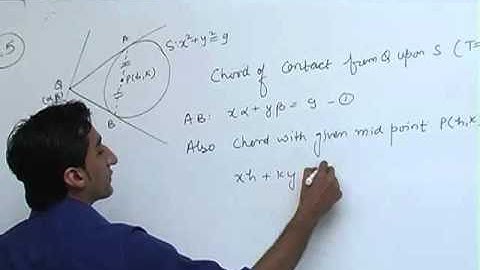 .5
A
S: x²+y²=9
P(h,k)
Q
(αβ)
B
Chord of Contact from Q upon S (T=
AB: xα + yβ = 9 - ①
Also Chord with given mid point P(h,k
xh + ky